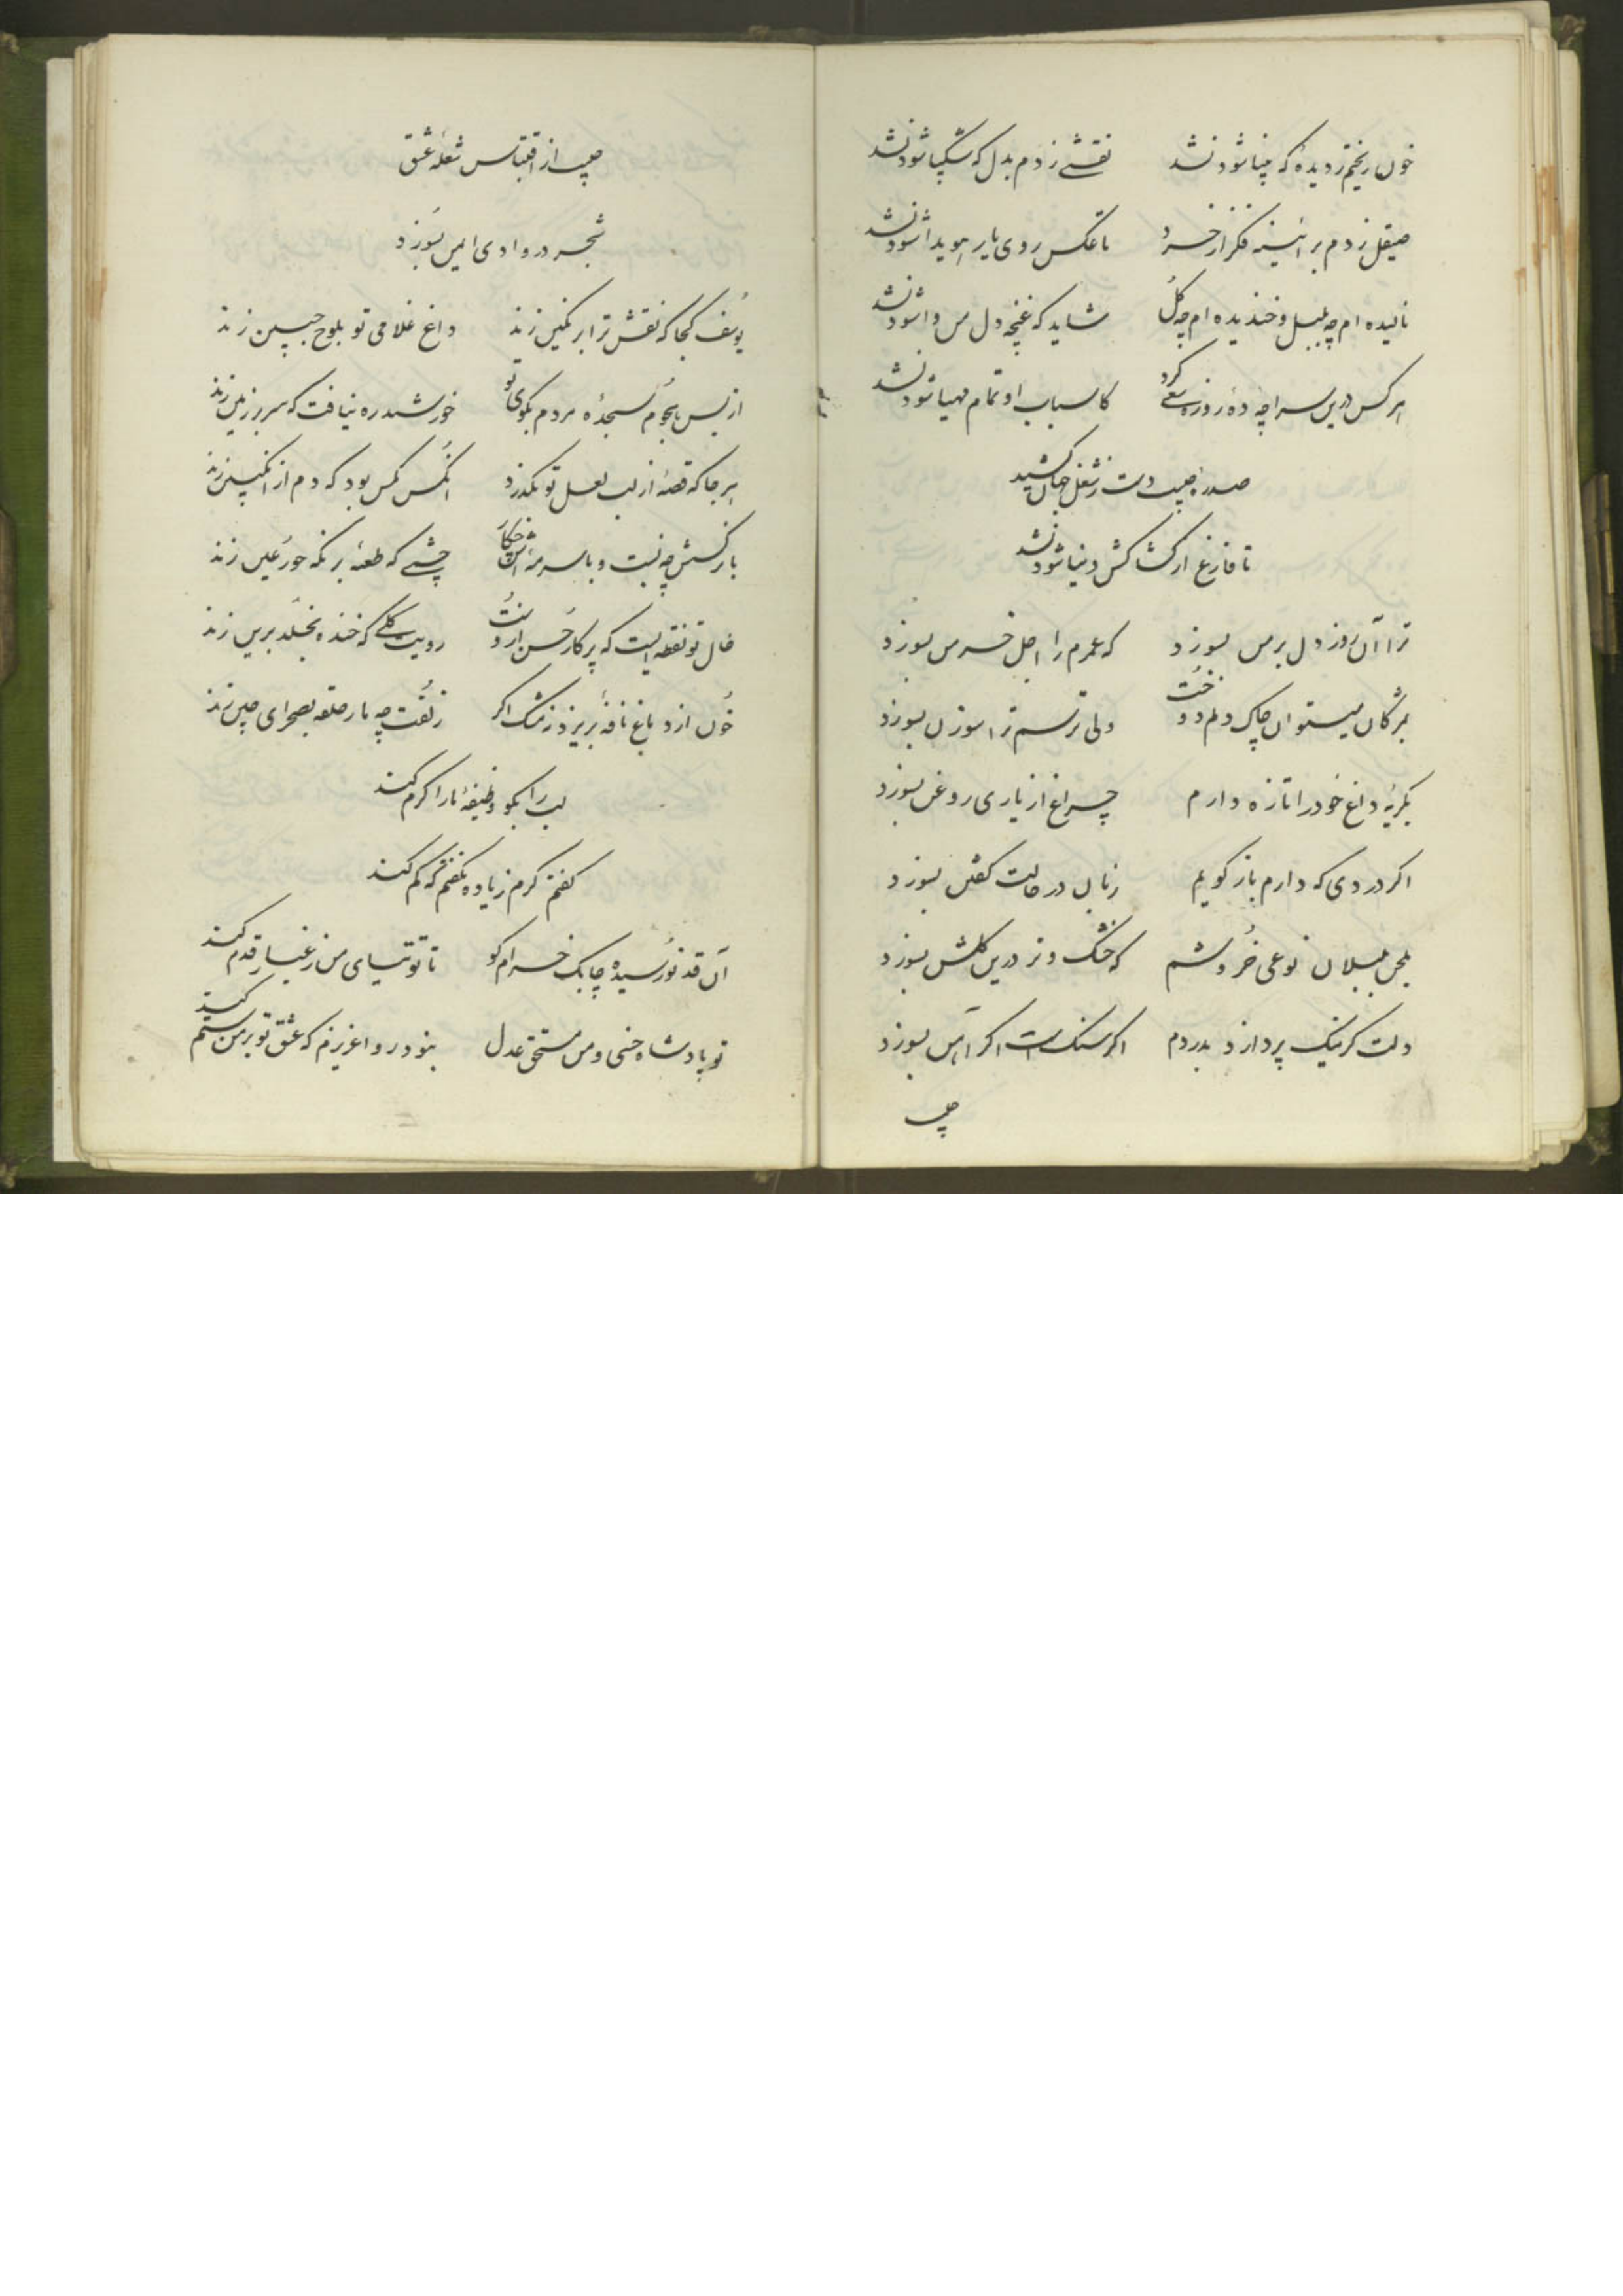 خون ریختم ز دیدهٔ که بینا شود نشد نقشے زدم بدل که شکیبا شود نشد
صیقل زدم بر آئینه فکر از خرد تا عکس روی یار هویدا شود نشد
نالیده ام چه بلبل و خندیده ام چه گل شاید که غنچه دل من وا شود نشد
هر کس درین سراچه ده روزه سعی کرد کاسباب او تمام مهیا شود نشد
صد ره حبیب دست ز شغل جهان کشید
تا فارغ از کشاکش دنیا شود نشد
ترا آن روز دل بر من بسوزد که عمرم را اجل خرمن بسوزد
بمژگان میتوان چاک دلم دوخت ولی ترسم ترا سوزن بسوزد
بگریه داغ خود را تازه دارم چراغ از یاری روغن بسوزد
اگر دردی که دارم باز گویم زبان در حالت گفتن بسوزد
بلحن بلبلان نوعی خروشم که خشک و تر درین گلشن بسوزد
دلت گر نیک پردازد بدردم اگر سنگ است اگر آهن بسوزد
حبیب
حبیب از اقتباس شعله عشق
شجر در وادی ایمن بسوزد
یوسف کجا که نقش ترا بر نگین زند داغ غلامی تو بلوح جبین زند
از بس هجوم سجدهٔ مردم بکوی تو خورشید ره نیافت که سر بر زمین زند
هر جا که قصهٔ از لب لعل تو بگذرد آنکس مگس بود که دم از انگبین زند
با نرگسش چه نسبت و با سرمه اش چکار چشمے که طعنه بر نگه حور عین زند
خال تو نقطه ایست که پرکار حسن ازوست رویت گلے که خنده بخلد برین زند
خون از دماغ نافه بریزد ز مشک اگر زلفت چه مار حلقه بصحرای چین زند
لب را بگو وظیفهٔ ما را کرم کند
گفتم کرم زیاده نگفتم که کم کند
آن قد نورسیده چابک خرام کو تا توتیای من ز غبار قدم کند
تو پادشاه حسنی و من مستحق عدل نبود روا عزیزم که عشق تو بر من ستم کند